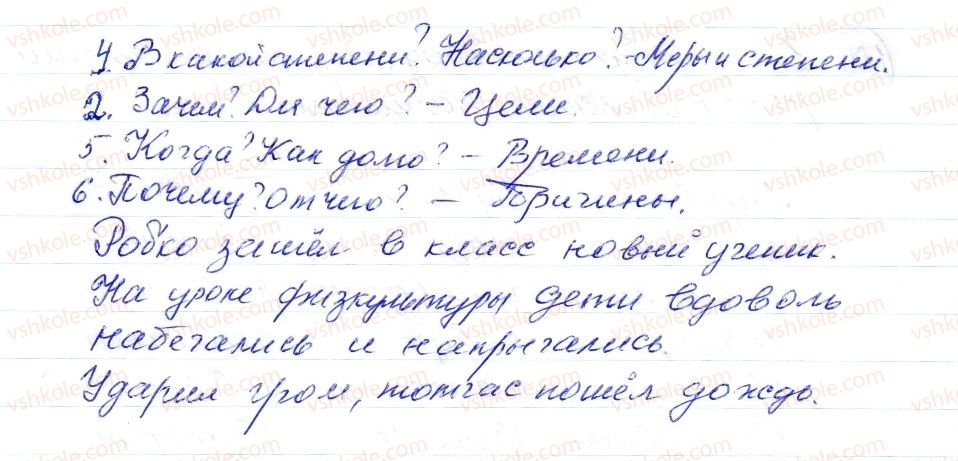 4. В какой степени? Насколько? - Меры и степени.
2. Зачем? Для чего? - Цели.
5. Когда? Как долго? - Времени.
6. Почему? Отчего? - Причины.
Робко зашёл в класс новый ученик.
На уроке физкультуры дети вдоволь
набегались и напрыгались.
Ударил гром, тотчас пошёл дождь.